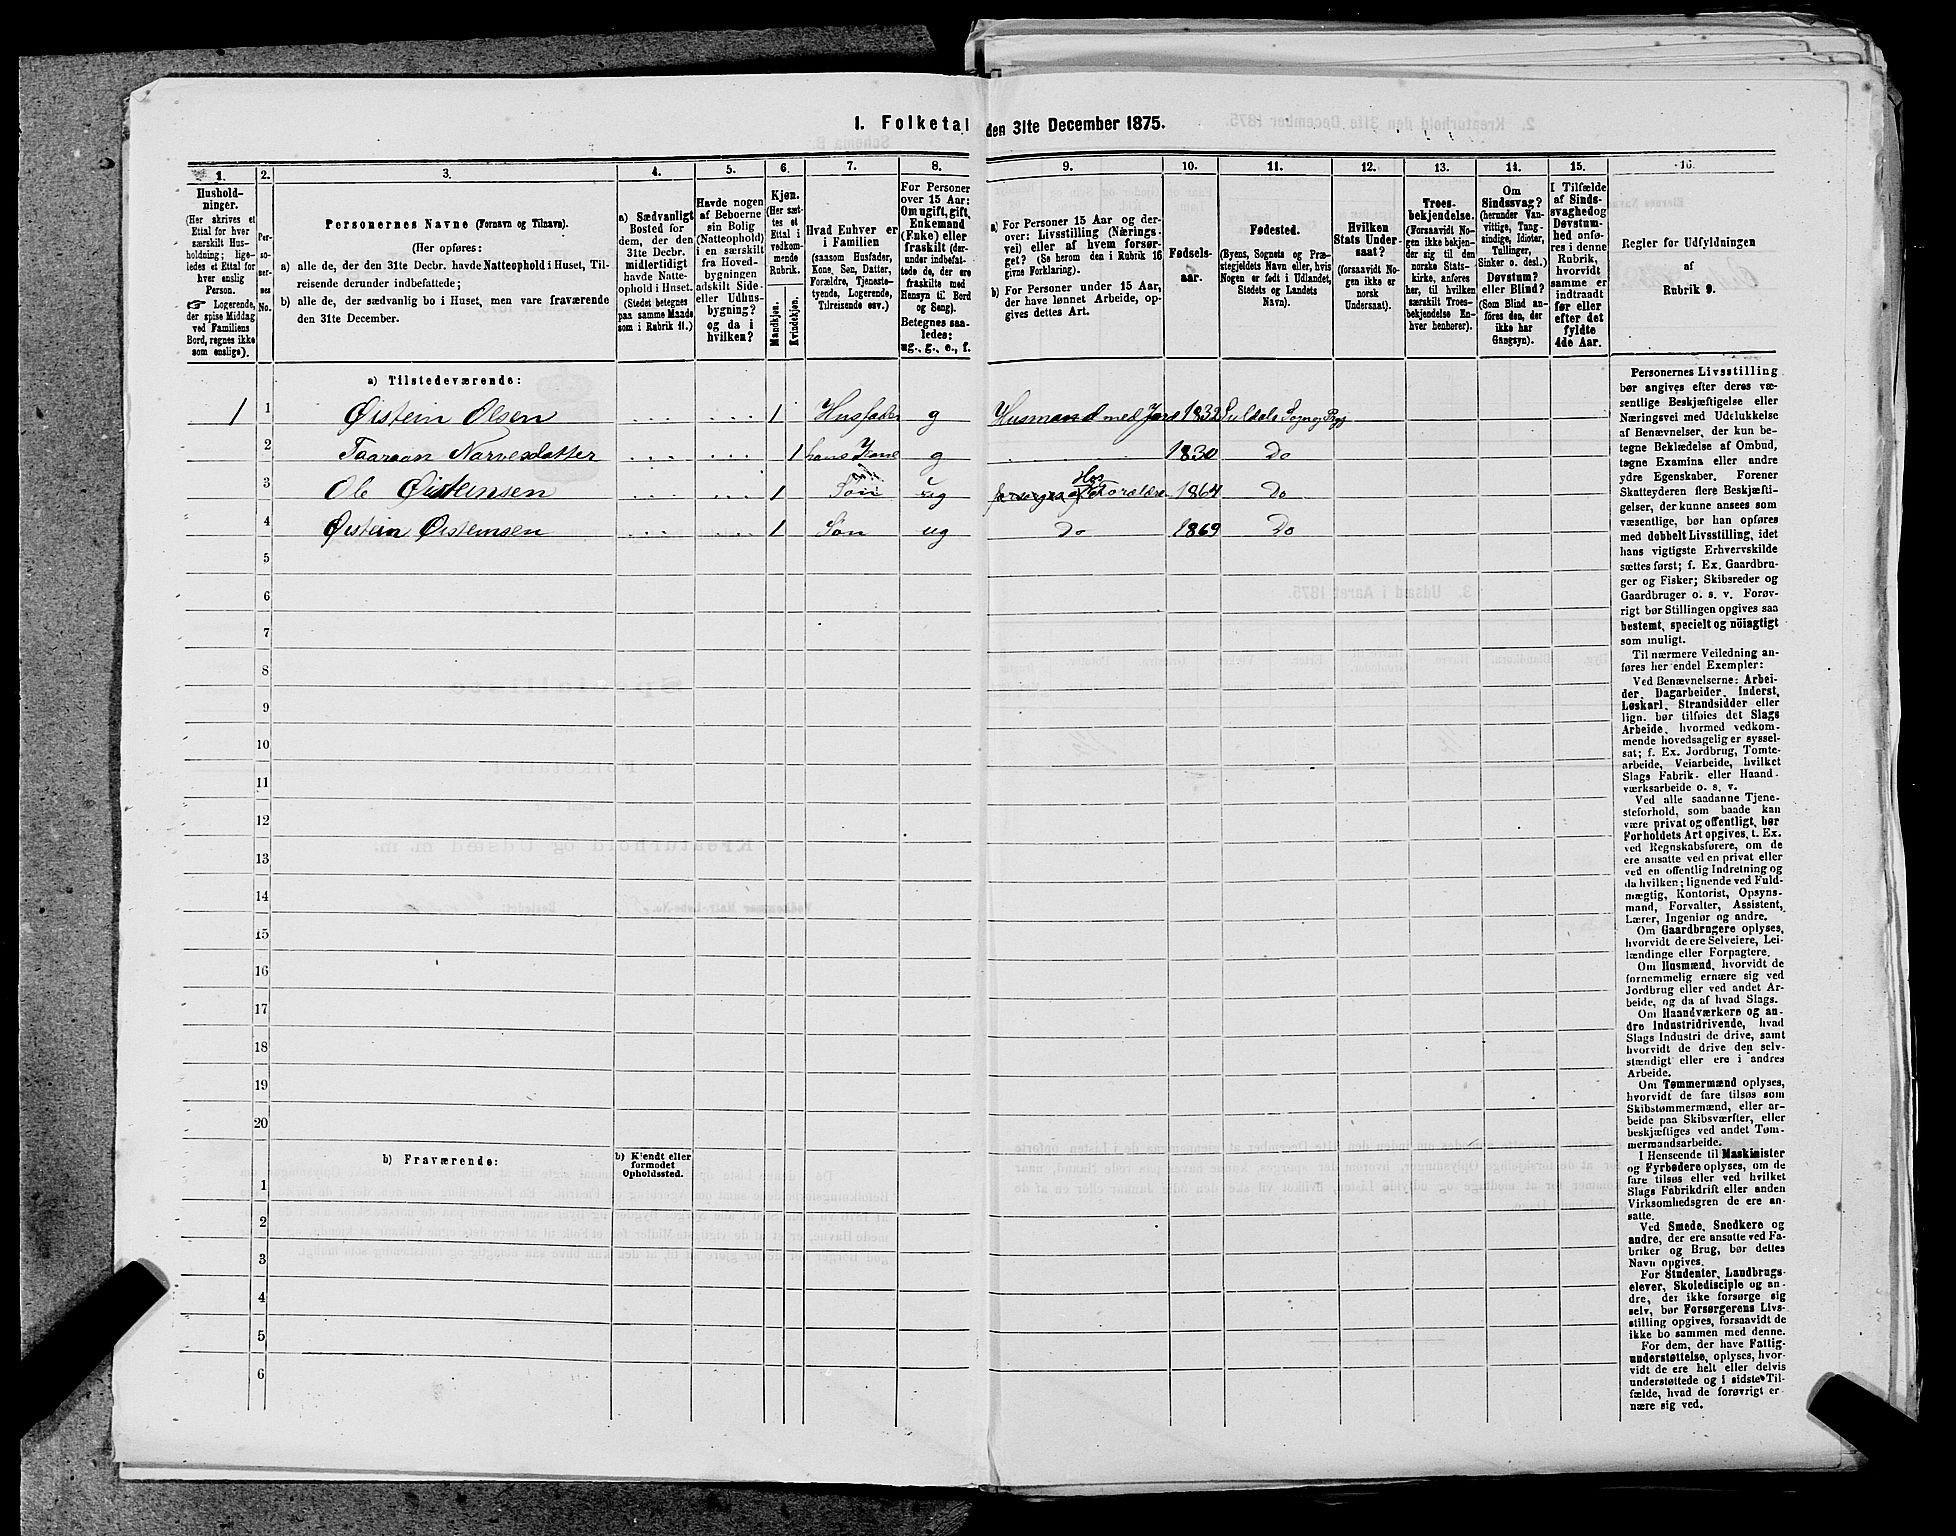 1. Folketal den 31te December 1875.
1. 2. 3. 4. 5. 6. 7. 8. 9. 10. 11. 12. 13. 14. 15. 16.
Hushold-
ninger.
(Her skrives et
Ettal for hver
særskilt Hus-
holdning; lige-
ledes et Ettal for
hver enslig
Person.
☞ Logerende,
der spise Middag
ved Familiens
Bord, regnes ikke
som enslige).
Per-
so-
ner-
nes
No.
Personernes Navne (Fornavn og Tilnavn).
(Her opføres:
a) alle de, der den 31te Decbr. havde Natteophold i Huset, Til-
reisende derunder indbefattede;
b) alle de, der sædvanlig bo i Huset, men vare fraværende
den 31te December.
a) Sædvanligt
Bosted for
dem, der den
31te Decbr.
midlertidigt
havde Natte-
ophold i Huset.
(Stedet betegnes
paa samme Maade
som i Rubrik 11.)
Havde nogen
af Beboerne
sin Bolig
(Natteophold)
i en særskilt
fra Hoved-
bygningen
adskilt Side-
eller Udhus-
bygning?
og da i
hvilken?
Kjøn.
(Her sæt-
tes et
Ettal i
vedkom-
mende
Rubrik.
Mandkjøn.
Kvindekjøn.
Hvad Enhver er
i Familien
(saasom Husfader,
Kone, Søn, Datter,
Forældre, Tjeneste-
tyende, Logerende,
Tilreisende osv.)
For Personer
over 15 Aar:
Om ugift, gift,
Enkemand
(Enke) eller
fraskilt (der-
under indbefat-
tede de, der ere
fraskilte med
Hensyn til Bord
og Seng).
Betegnes saa-
ledes:
ug., g., e., f.
a) For Personer 15 Aar og der-
over: Livsstilling (Nærings-
vei) eller af hvem forsør-
get? (Se herom den i Rubrik 16
givne Forklaring).
b) For Personer under 15 Aar,
der have lønnet Arbeide, op-
gives dettes Art.
Fødsels-
aar.
Fødested.
(Byens, Sognets og Præ-
stegjeldets Navn eller, hvis
Nogen er født i Udlandet,
Stedets og Landets
Navn).
Hvilken
Stats Under-
saat?
(forsaavidt No-
gen ikke er
norsk
Undersaat).
Troes-
bekjendelse.
(Forsaavidt No-
gen ikke bekjen-
der sig til den
norske Stats-
kirke, anføres
her, til hvilken
særskilt Troes-
bekjendelse En-
hver henhører).
Om
Sindssvag?
(herunder Van-
vittige, Tung-
sindige, Idioter,
Tullinger,
Sinker o. desl.).
Døvstum?
eller Blind?
(Som Blind an-
føres den, der
ikke har
Gangsyn).
I Tilfælde
af Sinds-
svaghed og
Døvstum-
hed anfø-
res i denne
Rubrik,
hvorvidt
samme er
indtraadt
før eller
efter det
fyldte
4de Aar.
Regler for Udfyldningen
af
Rubrik 9.
a) Tilstedeværende:
1 1 Øistein Olsen 1 Husfader g Husmand med Jord 1832 Suldals Sogn og Prgj
2 Taaraan Narvesdatter 1 hans Kone g 1830 Do
3 Ole Øisteinsen 1 Søn ug Hos Forældre 1864 Do
4 Øistein Øisteinsen 1 Søn ug Do 1869 Do
5
6
7
8
9
10
11
12
13
14
15
16
17
18
19
20
b) Fraværende:
b) Kjendt eller
formodet
Opholdssted.
1
2
3
4
5
6
Personernes Livsstilling
bør angives efter deres væ-
sentlige Beskjæftigelse eller
Næringsvei med Udelukkelse
af Benævnelser, der kun be-
tegne Beklædelse af Ombud,
tagne Examina eller andre
ydre Egenskaber. Forener
Skatteyderen flere Beskjæfti-
gelser, der kunne ansees som
væsentlige, bør han opføres
med dobbelt Livsstilling, idet
hans vigtigste Erhvervskilde
sættes først; f. Ex. Gaardbru-
ger og Fisker; Skibsreder og
Gaardbruger o. s. v. Forøv-
rigt bør Stillingen opgives saa
bestemt, specielt og nöiagtigt
som muligt.
Til nærmere Veiledning an-
føres her endel Exempler:
Ved Benævnelserne: Arbei-
der, Dagarbeider, Inderst,
Løskarl, Strandsidder eller
lign. bør tilføies det Slags
Arbeide, hvormed vedkom-
mende hovedsagelig er syssel-
sat; f. Ex. Jordbrug, Tomte-
arbeide, Veiarbeide, hvilket
Slags Fabrik- eller Haand-
værksarbeide o. s. v.
Ved alle saadanne Tjene-
steforhold, som baade kan
være privat og offentligt, bør
Forholdets Art opgives, t. Ex.
ved Regnskabsførere, om de
ere ansatte ved en privat eller
ved en offentlig Indretning og
da hvilken; lignende ved Fuld-
mægtig, Kontorist, Opsyns-
mand, Forvalter, Assistent,
Lærer, Ingeniør og andre.
Om Gaardbrugere oplyses,
hvorvidt de ere Selveiere, Lei-
lændinge eller Forpagtere.
Om Husmænd, hvorvidt de
fornemmelig ernære sig ved
Jordbrug eller ved andet Ar-
beide, og da af hvad Slags.
Om Haandværkere og an-
dre Industridrivende, hvad
Slags Industri de drive, samt
hvorvidt de drive den selv-
stændigt eller ere i andres
Arbeide.
Om Tømmermænd oplyses,
hvorvidt de fare tilsøs som
Skibstømmermænd, eller ar-
beide paa Skibsværfter, eller
beskjæftiges ved andet Tøm-
mermandsarbeide.
I Henseende til Maskinister
og Fyrbødere oplyses, om de
fare tilsøs eller ved hvilket
Slags Fabrikdrift eller anden
Virksomhedsgren de ere an-
satte.
Ved Smede, Snedkere og
andre, der ere ansatte ved Fa-
briker og Brug, bør dettes
Navn opgives.
For Studenter, Landbrugs-
elever, Skoledisciple og an-
dre, der ikke forsørge sig
selv, bør Forsørgerens Livs-
stilling opgives, forsaavidt de
ikke bo sammen med denne.
For dem, der have Fattig-
understøttelse, oplyses, hvor-
vidt de ere helt eller delvis
understøttede og i sidste Til-
fælde, hvad de forøvrigt er-
nære sig ved.